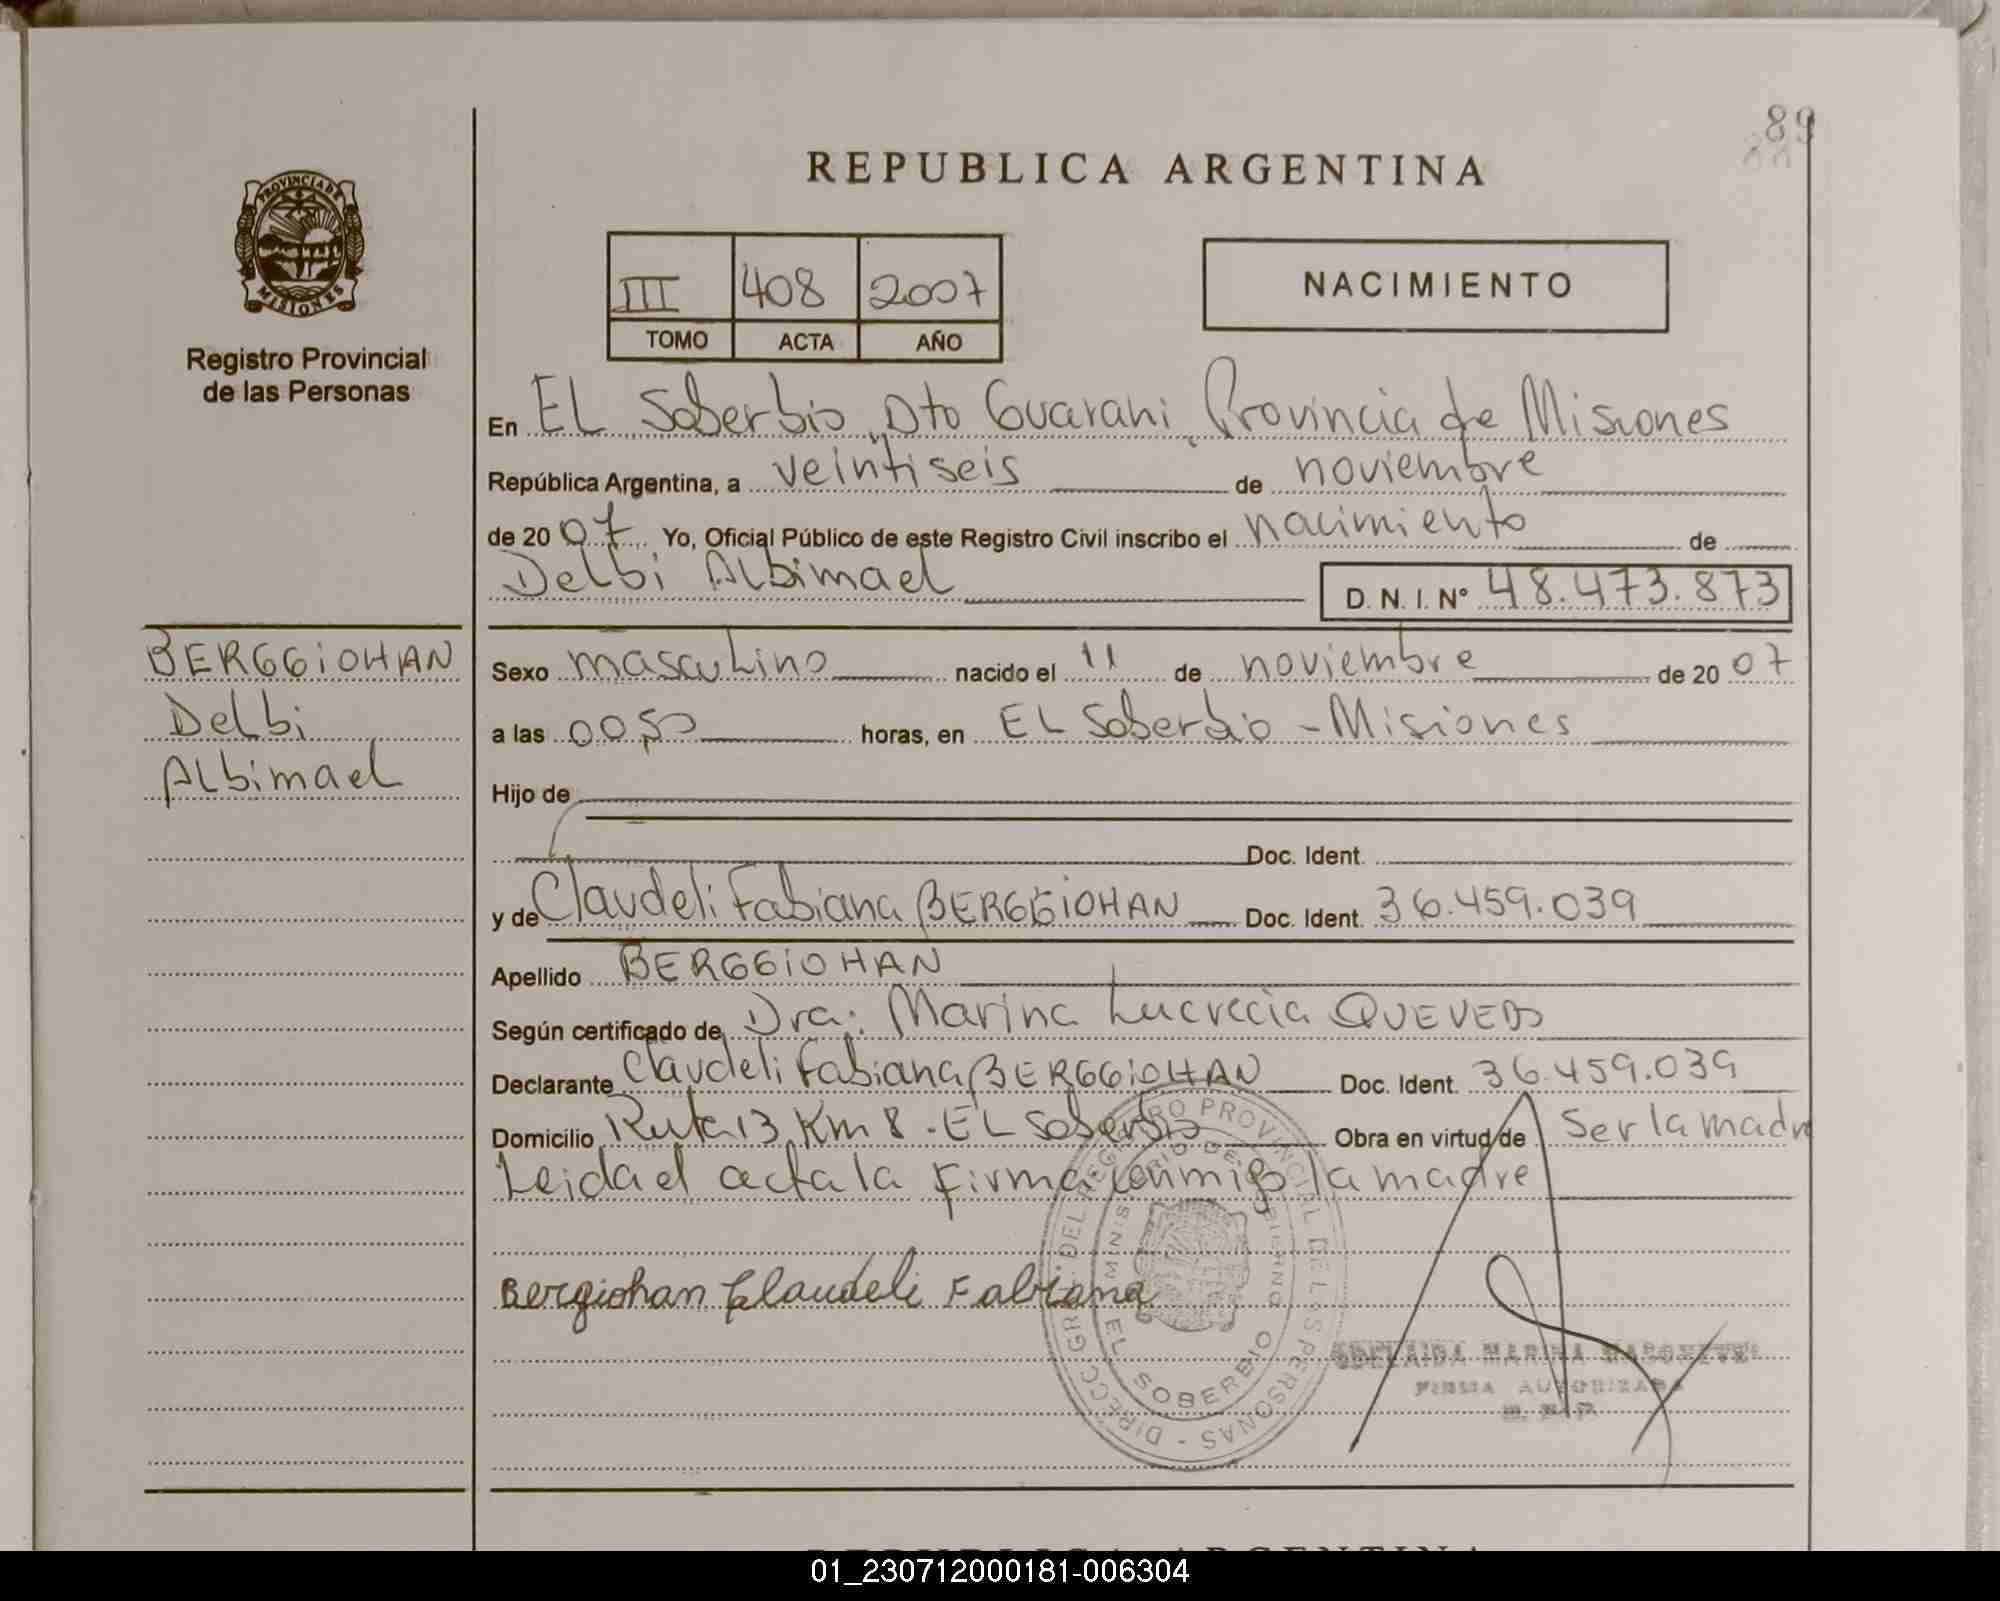 89
REPUBLICA ARGENTINA
PROVINCIA DE
MISIONES
Registro Provincial
de las Personas
III 408 2007
TOMO ACTA AÑO
NACIMIENTO
En EL Soberbio, Dto Guarani, Provincia de Misiones
República Argentina, a veintiseis de noviembre
de 2007 Yo, Oficial Público de este Registro Civil inscribo el nacimiento de
Delbi Albimael D. N. I. Nº 48.473.873
BERGGiOHAN
Delbi
Albimael
Sexo masculino nacido el 11 de noviembre de 2007
a las 00,50 horas, en EL Soberbio - Misiones
Hijo de
Doc. Ident.
y de Claudeli Fabiana BERGGiOHAN Doc. Ident. 36.459.039
Apellido BERGGiOHAN
Según certificado de Dra. Marina Lucrecia QUEVEDO
Declarante Claudeli Fabiana BERGGiOHAN Doc. Ident. 36.459.039
Domicilio Ruta 13 Km 8 - EL Soberbio Obra en virtud de Ser la madre
Leida el acta la Firma conmigo la madre
Bergiohan Claudeli Fabiana
DIRECC. GRAL. DEL REGISTRO PROVINCIAL DE LAS PERSONAS -
MINISTERIO DE GOBIERNO
EL SOBERBIO
ADELAIDA MARINA
FIRMA AUTORIZADA
REPUBLICA ARGENTINA
01_230712000181-006304